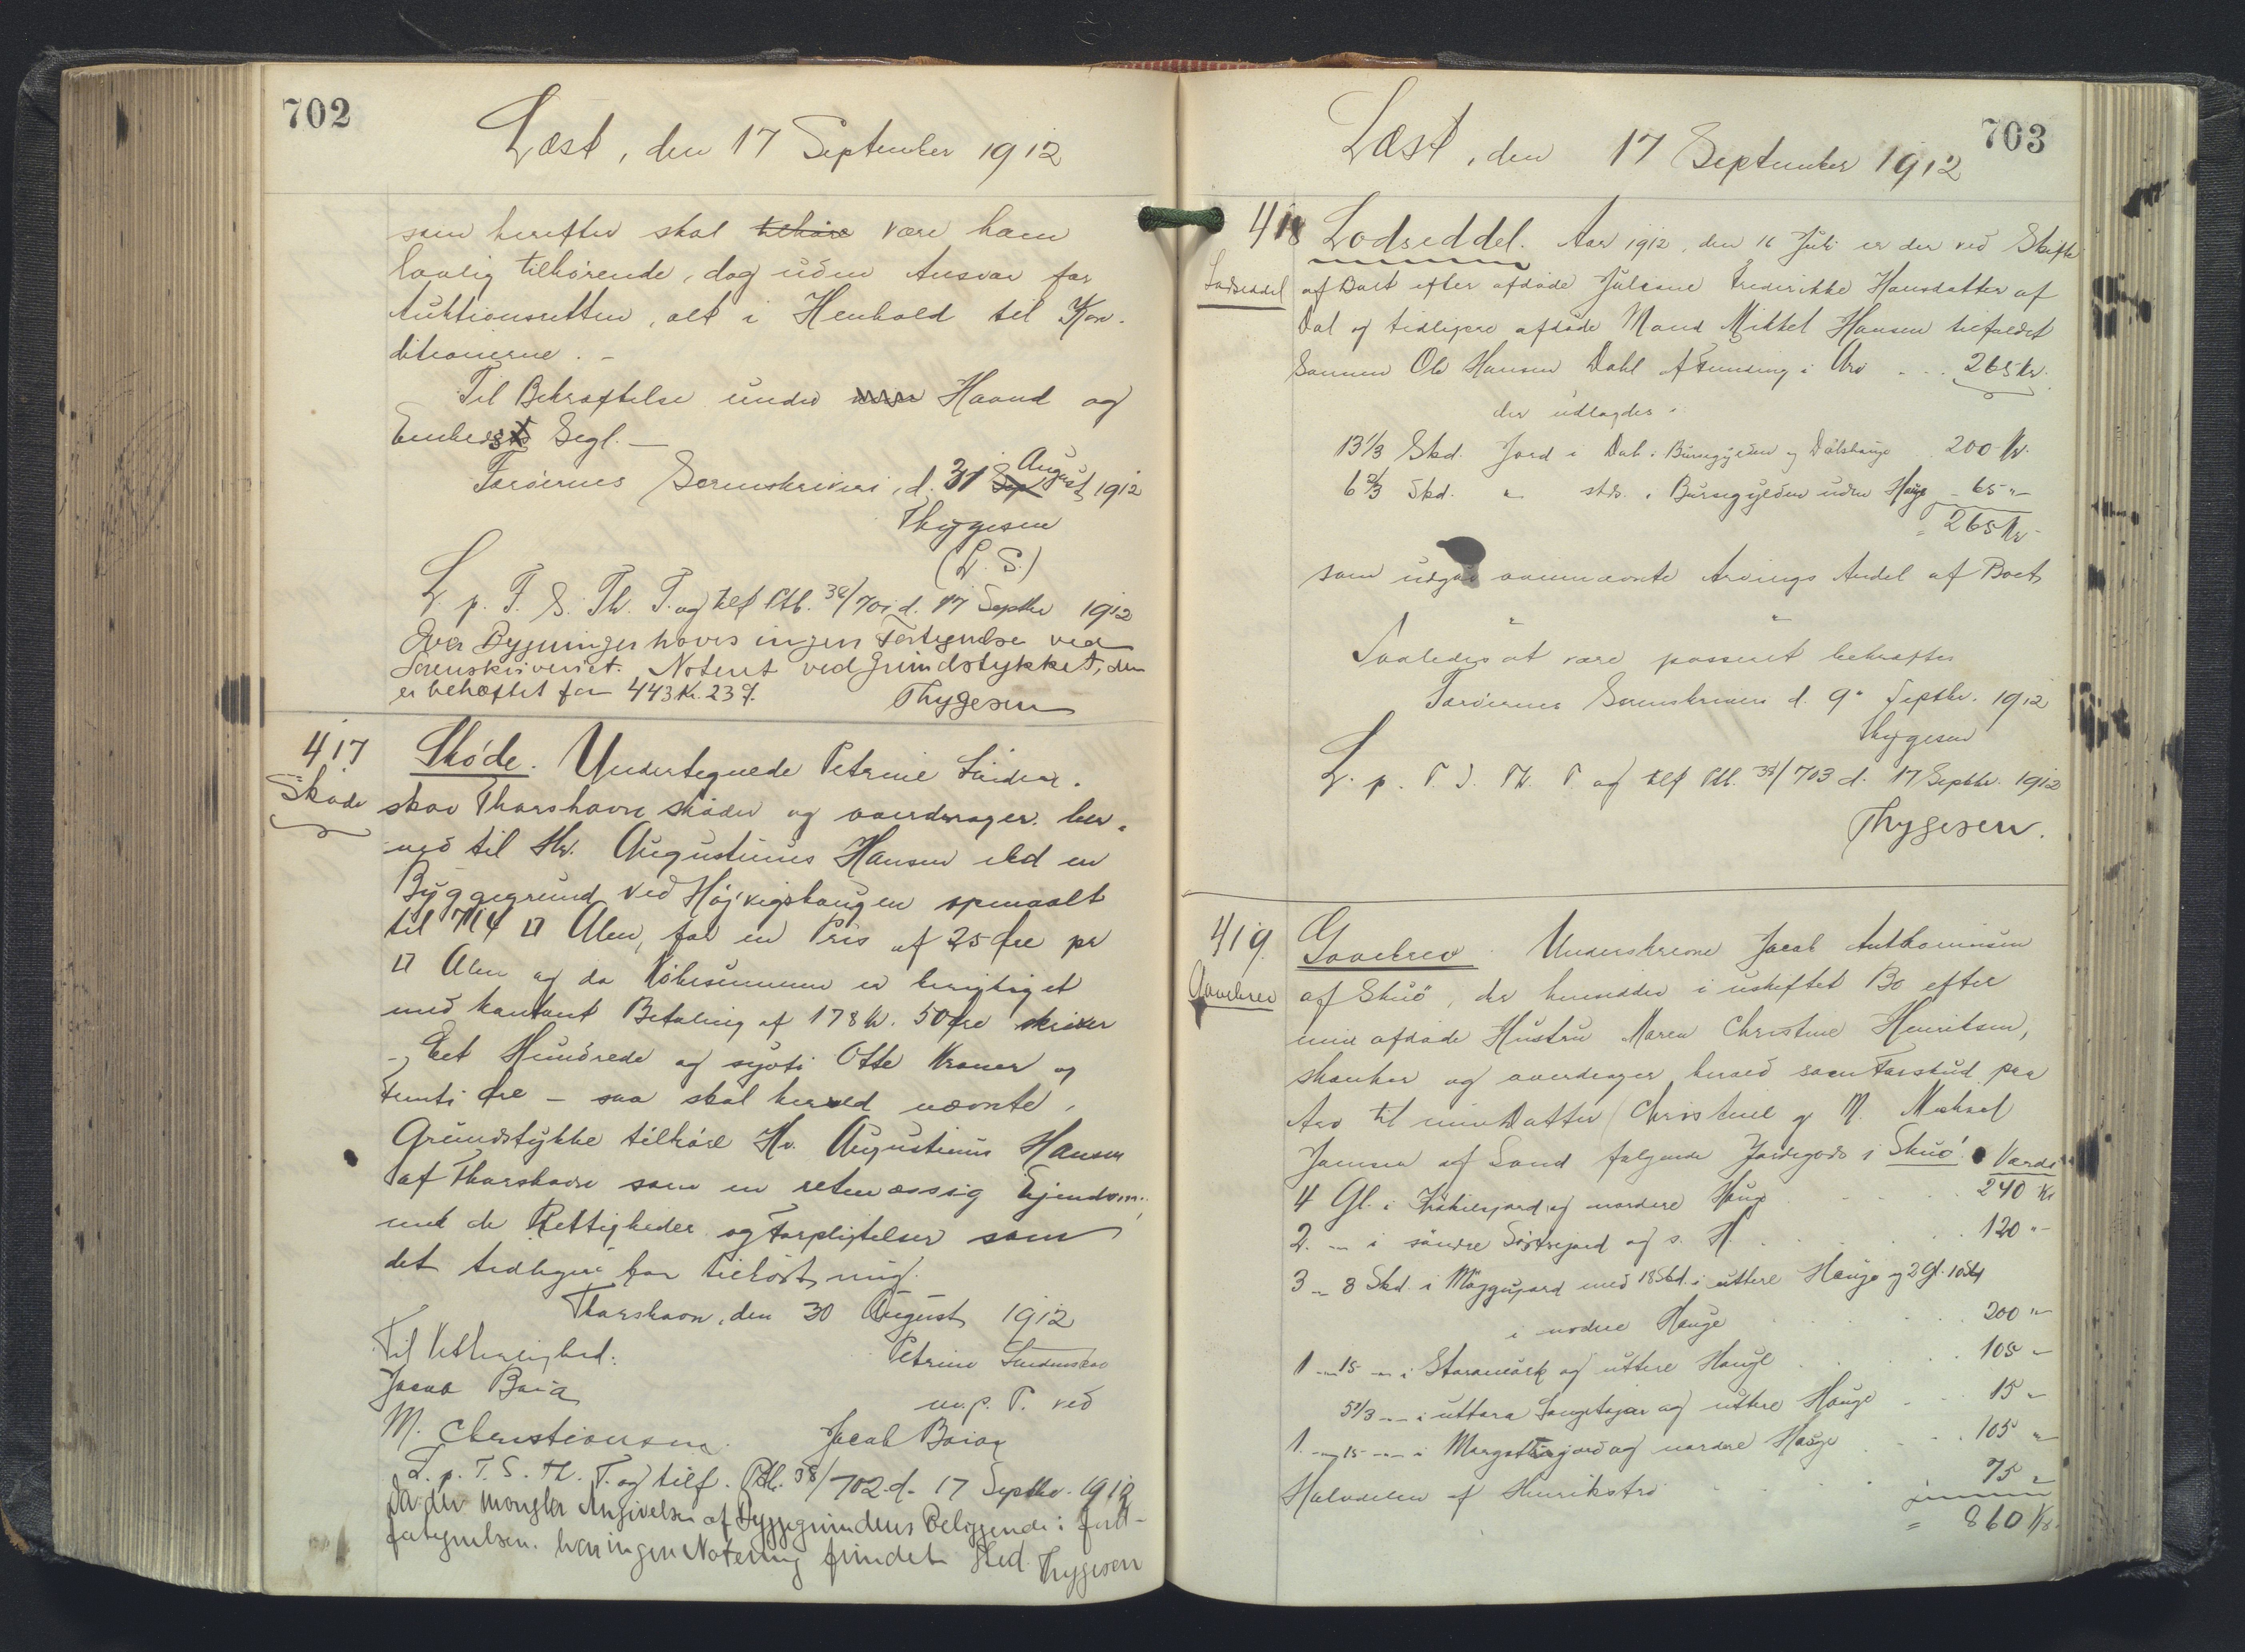 702
Læst, den 17 September 1912
som herefter skal tilhøre være ham
lovlig tilhørende, dog uden Ansvar for
Auktionsretten, alt i Henhold til Kon-
ditionerne. -
Til Bekræftelse under Haand og
Embeds Segl. -
Færøernes Sorenskriveri, d. 31 Sep August 1912
Thygesen
(L. S.)
L. p. F. S. Th. T. og tilf Ptb. 38/701 d. 17 Septbr 1912
Over Bygninger haves ingen Fortegnelse ved
Sorenskriveriet. Noteret ved Grundstykket, der
er behæftet for 443 Kr. 23 Ø.
Thygesen
417
Skøde
Skøde. Undertegnede Petrine Sinder-
skov Thorshavn skøder og overdrager her-
med til Hr. Augustinus Hansen ibd en
Byggegrund ved Højvigshaugen opmaalt
til 714 □ Alen, for en Pris af 25 Øre pr
□ Alen og da Købesummen er berigtiget
med kontant Betaling af 178 Kr. 50 Øre skriver
- Eet Hundrede og syvti Otte Kroner og
Femti Øre - saa skal herved nævnte
Grundstykke tilhøre Hr. Augustinus Hansen
af Thorshavn som en retmæssig Ejendom,
med de Rettigheder og Forpligtelser som
det tidligere har tilhørt mig.
Thorshavn, den 30 August 1912
Til Vitterlighed:
Petrine Sinderskov
Jacob Baia
m. p. P. ved
M. Christiansen
Jacob Baia
L. p. F. S. Th. T. og tilf. Ptb. 38/702 d. 17 Septbr. 1912
Da der mangler Angivelse af Byggegrundens Beliggende i
fortegnelsen har ingen Notering fundet Sted. Thygesen
703
Læst, den 17 September 1912
418
Lodseddel
Lodseddel. Aar 1912, den 16 Juli er der ved Skifte
af Boet efter afdøde Juliane Frederikke Hansdatter af
Dal og tidligere afdøde Mand Mikkel Hansen tilfaldet
Sønnen Ole Hansen Dahl af i Arv . . . 265 Kr.
der udlagdes:
13 1/3 Skd. Jord i Dal i og 200 Kr.
6 2/3 Skd. " stds. i uden Hauge - 65 "
= 265 Kr
som udgør ovennævnte Arvings Andel af Boet
Saaledes at være passeret bekræftes
Færøernes Sorenskriveri d. 9' Septbr. 1912
Thygesen
L. p. F. S. Th. T. og tilf Ptb. 38/703 d. 17 Septbr. 1912
Thygesen.
419
Gavebrev
Gavebrev. Underskrevne Jacob Anthoniussen
af Skuø, der hensidder i uskiftet Bo efter
min afdøde Hustru Maren Christine Henriksen,
skænker og overdrager herved som Forskud paa
Arv til min Datter Christine g. M. Michael
Jensen af Sand følgende Jordegods i Skuø: Værdi
4 Gl. i og nordere Hauge . . . . 240 Kr
2 " i søndre og s. H. . . . . 120 "
3 " 8 Skd. i med 18 Skd. i uttere Hauge og 2 Gl. 10 Skd
i nordere Hauge . . . . 200 "
1 " 15 " i og uttere Hauge . . . . 105 "
5 1/3 " i uttara og uttere Hauge . . . 15 "
1 " 15 " i og nordere Hauge . . . 105 "
Halvdelen af . . . . 75 "
= 860 Kr.